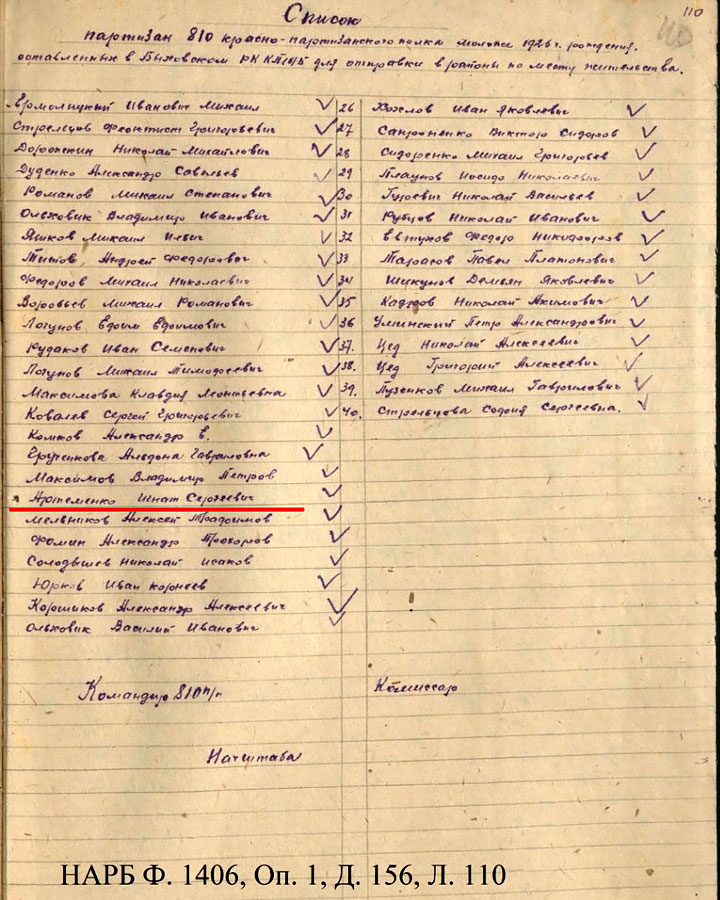 110
Список
партизан 810 красно-партизанского полка моложе 1926 г. рождения,
оставленных в Быховском РК КП(б)Б для отправки в районы по месту жительства.
Ермолицкий Иванович Михаил
Стрельцов Феоктист Григорьевич
Доронькин Николай Михайлович
Дуденко Александр Савельев
Романов Михаил Степанович
Ольховик Владимир Иванович
Яшков Михаил Ильич
Титов Андрей Федорович
Федоров Михаил Николаевич
Воробьев Михаил Романович
Логунов Ефим Ефимович
Рудаков Иван Семенович
Логунов Михаил Тимофеевич
Максимова Клавдия Леонтьевна
Ковалев Сергей Григорьевич
Комков Александр Е.
Альдона Гавриловна
Максимов Владимир Петров
Артеменко Игнат Сергеевич
Мельников Алексей Трофимов
Фомин Александр Прохоров
Солодышев Николай Исаков
Юрков Иван Корнеев
Коршиков Александр Алексеевич
Ольховик Василий Иванович
26 Козлов Иван Яковлевич
27 Сапроненко Виктор Сидоров
28 Сидоренко Михаил Григорьев
29 Плацнов Иосиф Николаевич
30 Гуревич Николай Васильев
31 Рубцов Николай Иванович
32 Евтухов Федор Никифоров
33 Тарасов Павел Платонович
34 Шукунов Демьян Яковлевич
35 Кадров Николай Акимович
36 Улминский Петр Александрович
37. Цед Николай Алексеевич
38. Цед Григорий Алексеевич
39. Пузенков Михаил Гаврилович
40. Стрельцова София Сергеевна.
Командир 810 п/п
Комиссар
Начштаба
НАРБ Ф. 1406, Оп. 1, Д. 156, Л. 110